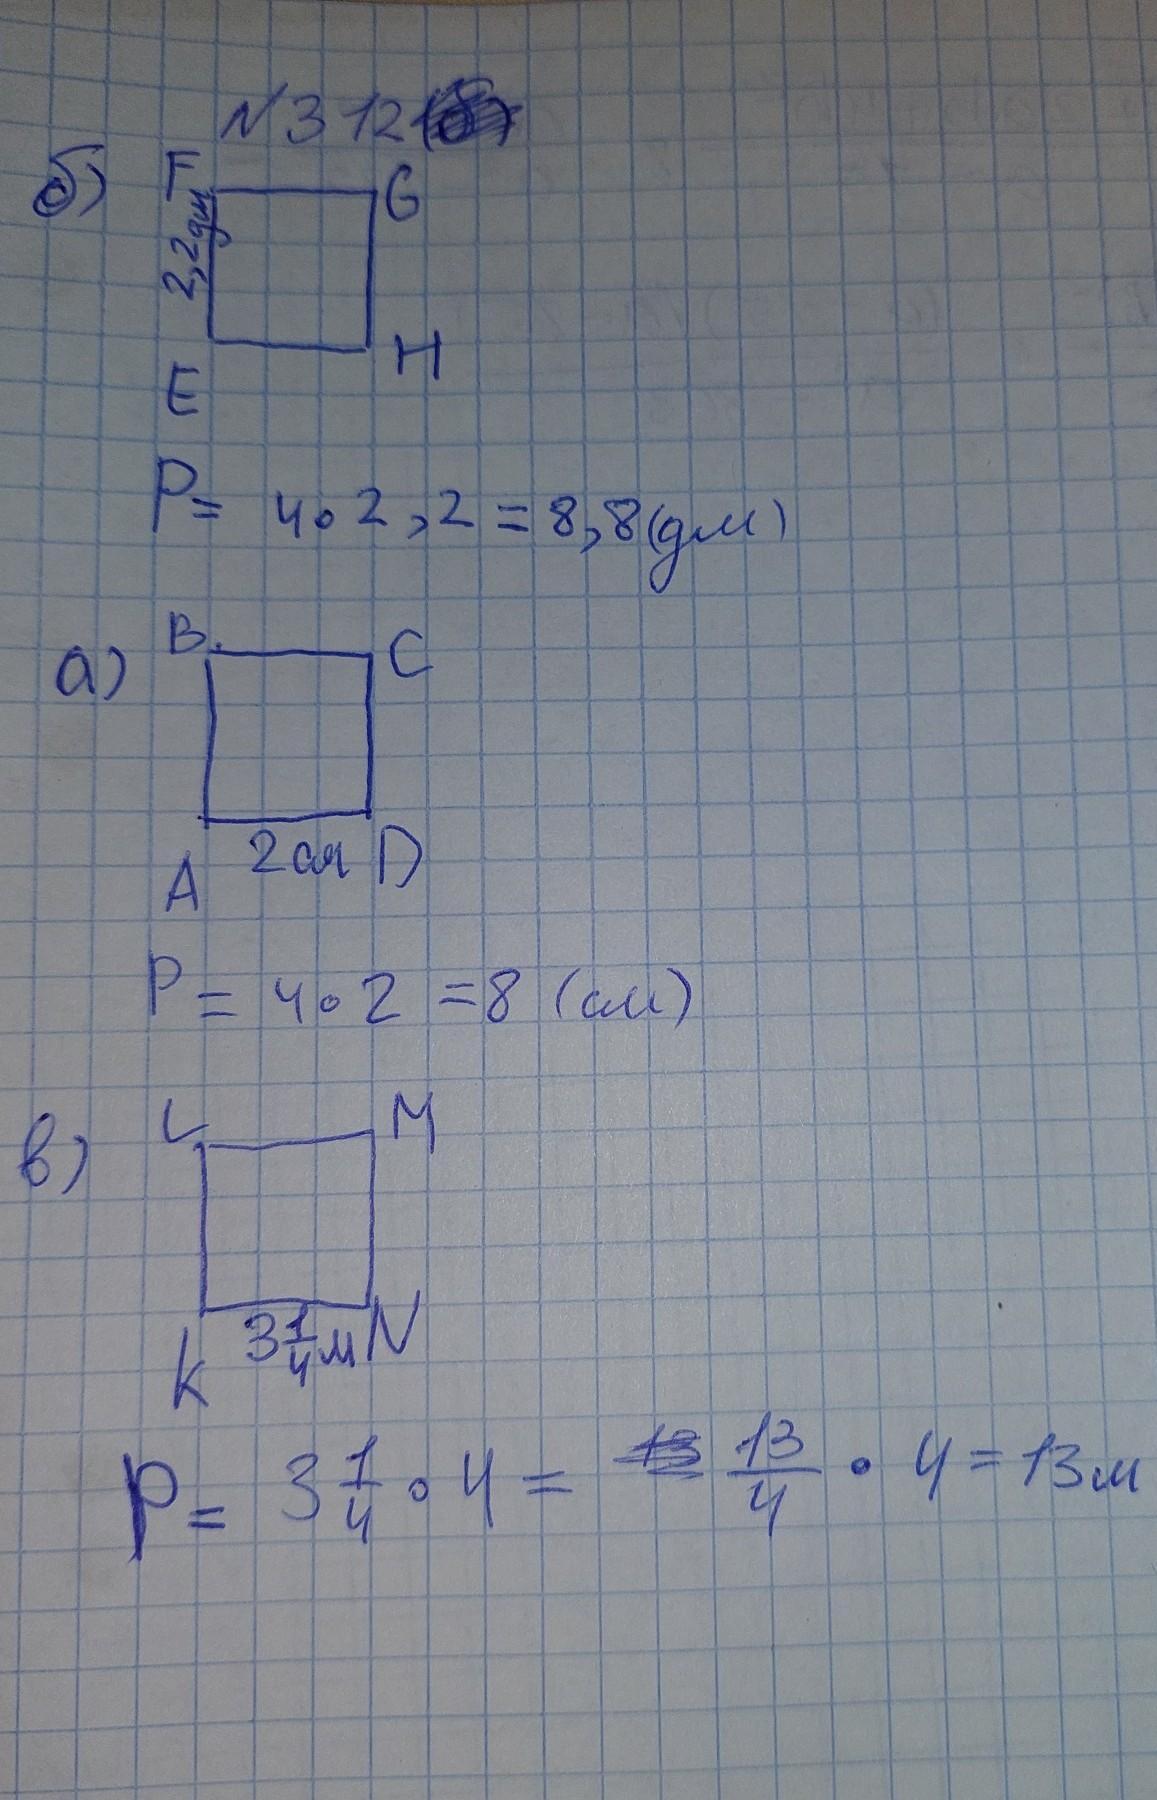 №312
б) F G
2,2дм
E H
P = 4·2,2 = 8,8(дм)
а) B C
A 2см D
P = 4·2 = 8 (см)
в) L M
K 3 1/4 м N
P = 3 1/4 · 4 = 13/4 · 4 = 13м